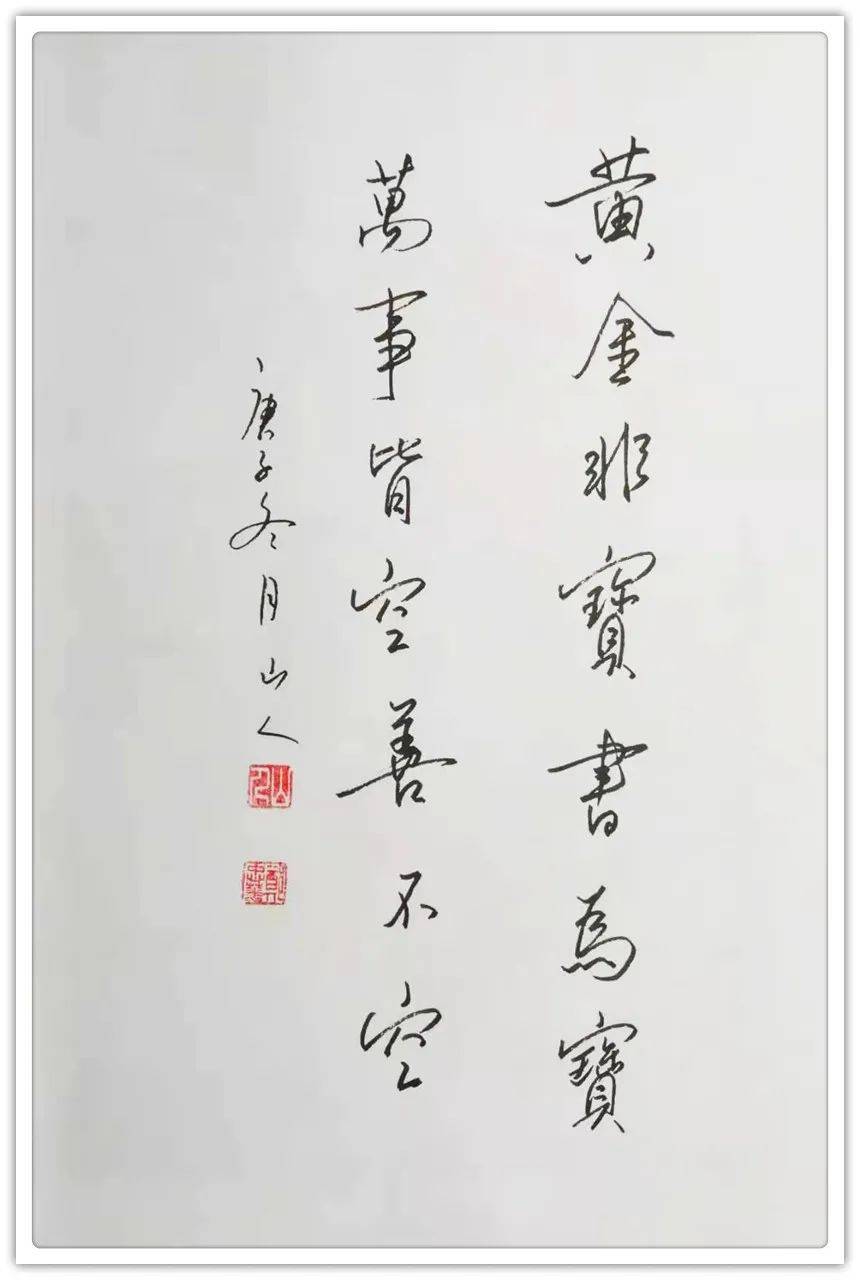 黄金非寶書為寶
萬事皆空善不空
庚子冬月山人
山人